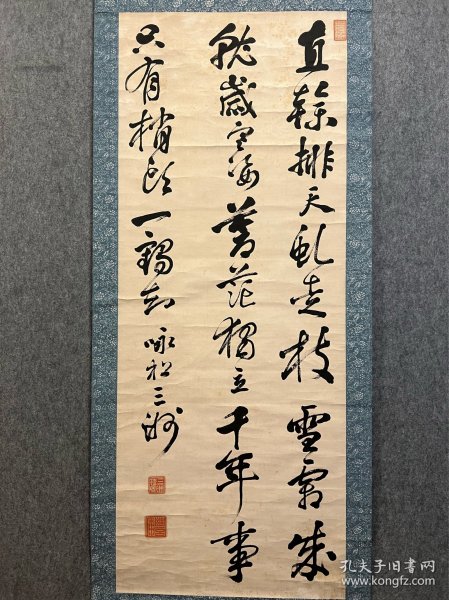 直榦排天虬走枝雪霜成
就歲寒姿蒼茫獨立千年事
只有梢頭一鶴知 咏松 三洲
孔夫子旧书网
www.kongfz.com